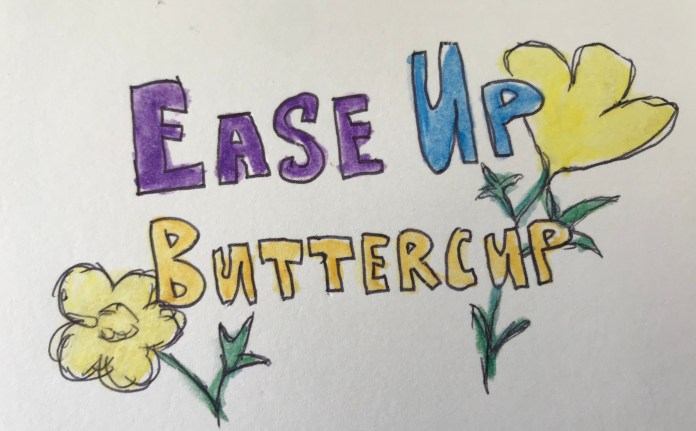 EASE UP
BUTTERCUP